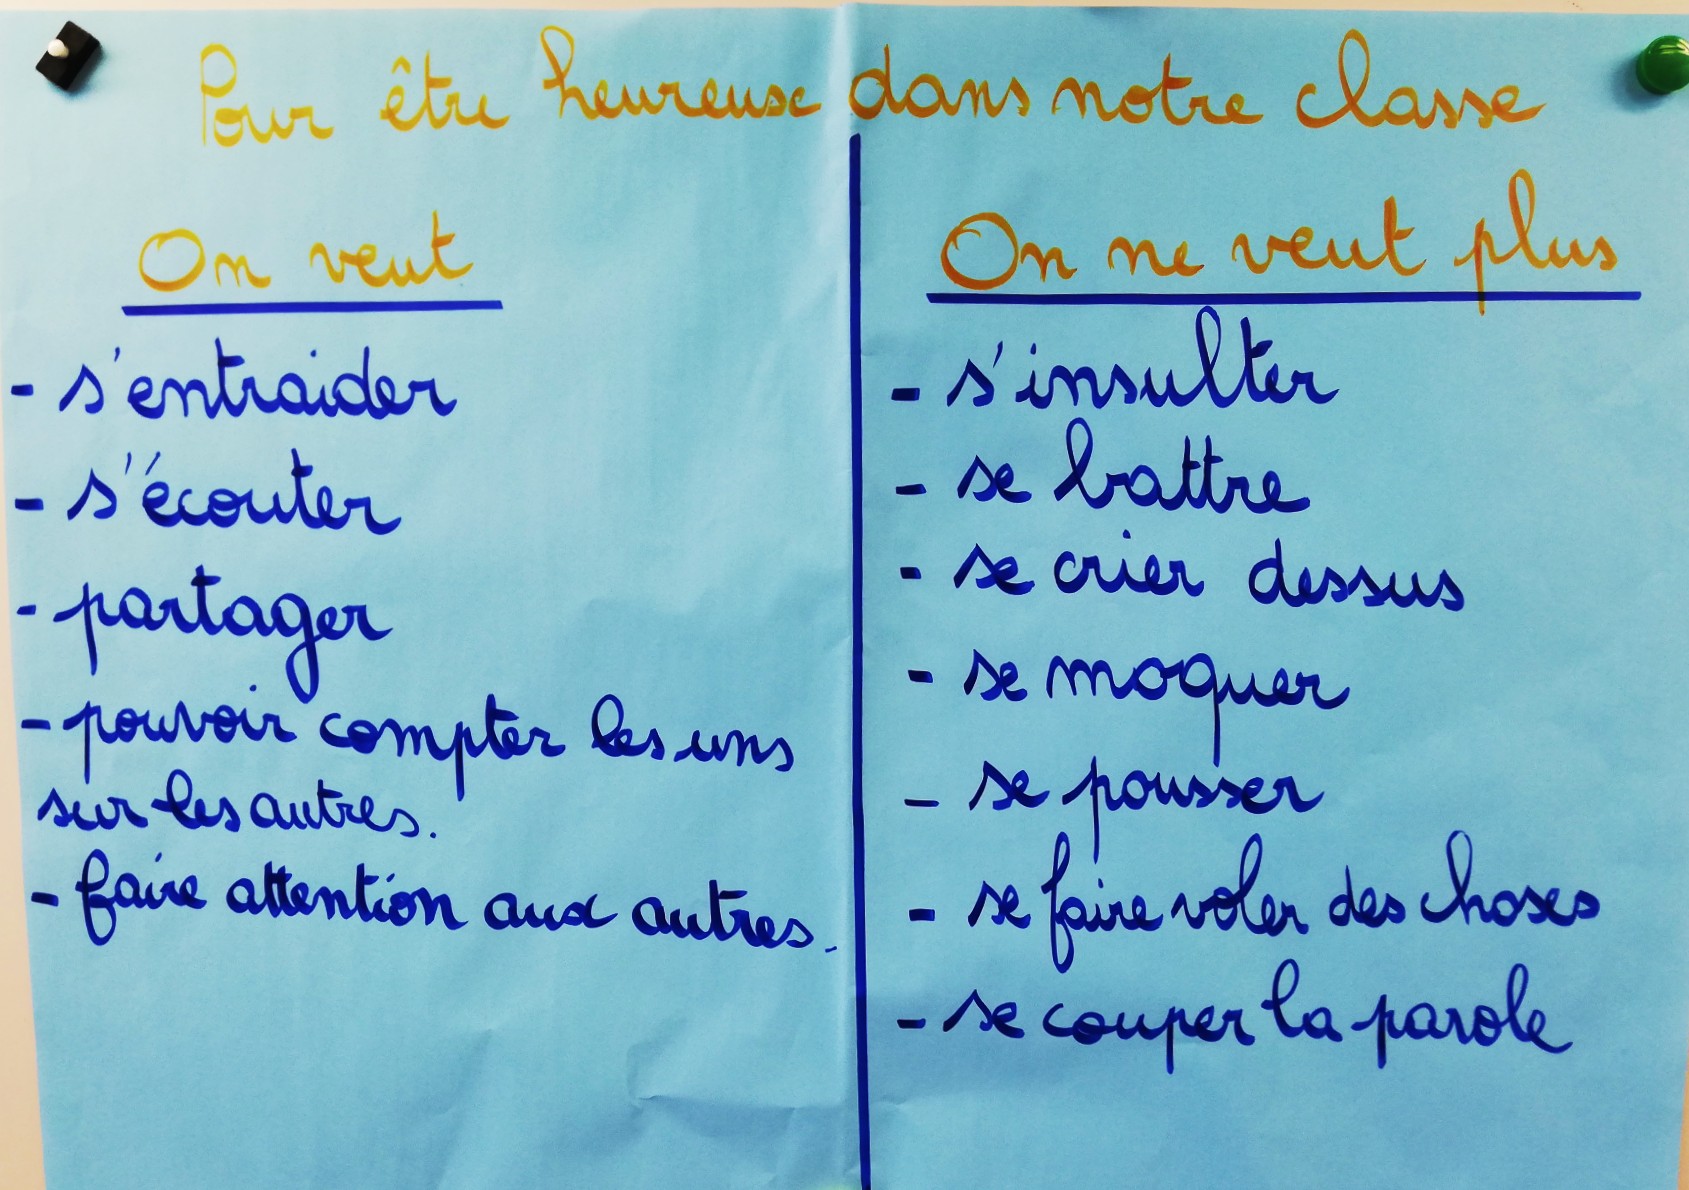 Pour être heureuse dans notre classe
On veut
- s'entraider
- s'écouter
- partager
- pouvoir compter les uns
sur les autres.
- faire attention aux autres.
On ne veut plus
- s'insulter
- se battre
- se crier dessus
- se moquer
- se pousser
- se faire voler des choses
- se couper la parole